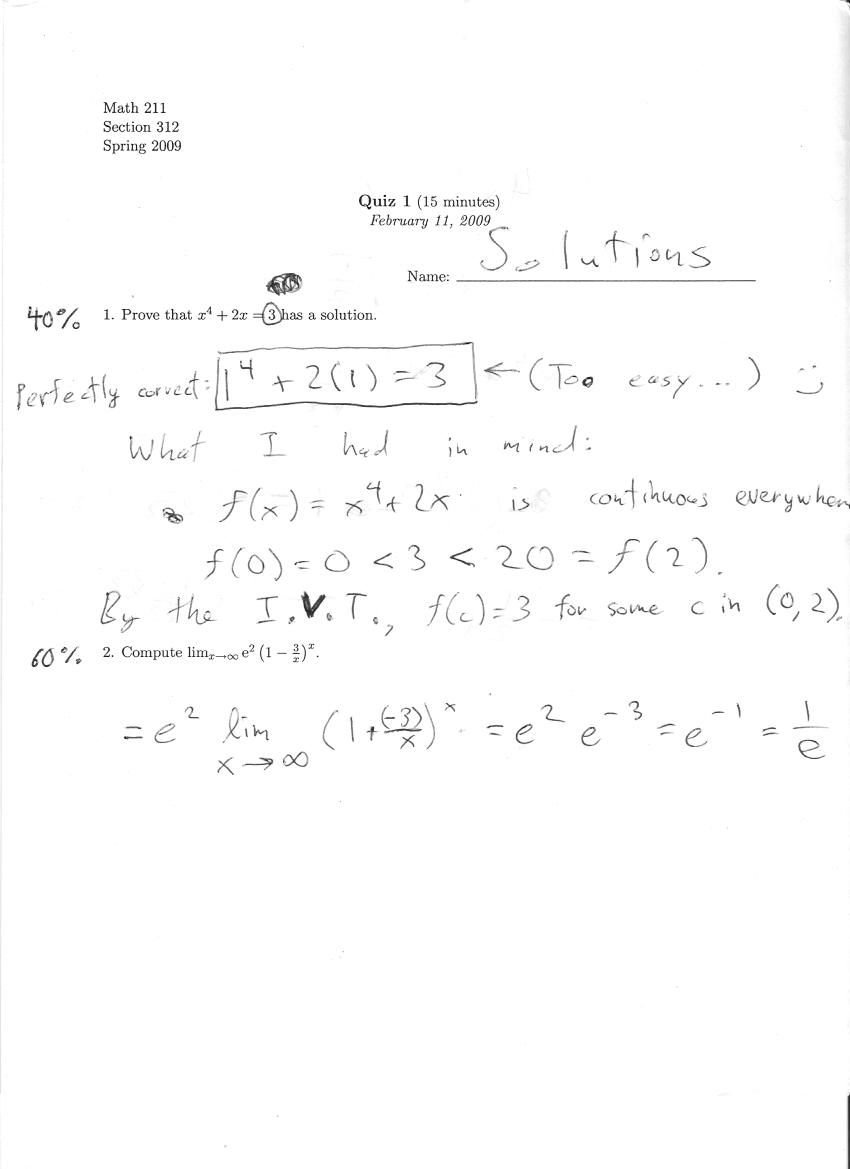 Math 211
Section 312
Spring 2009
Quiz 1 (15 minutes)
February 11, 2009
Name: Solutions
40% 1. Prove that x⁴ + 2x = 3 has a solution.
Perfectly correct: 1⁴ + 2(1) = 3 ← (Too easy...) :)
What I had in mind:
f(x) = x⁴ + 2x is continuous everywhere
f(0) = 0 < 3 < 20 = f(2).
By the I.V.T., f(c) = 3 for some c in (0, 2).
60% 2. Compute lim_{x→∞} e² (1 − 3/x)^x.
= e² lim_{x→∞} (1 + (-3)/x)^x = e² e^{-3} = e^{-1} = 1/e